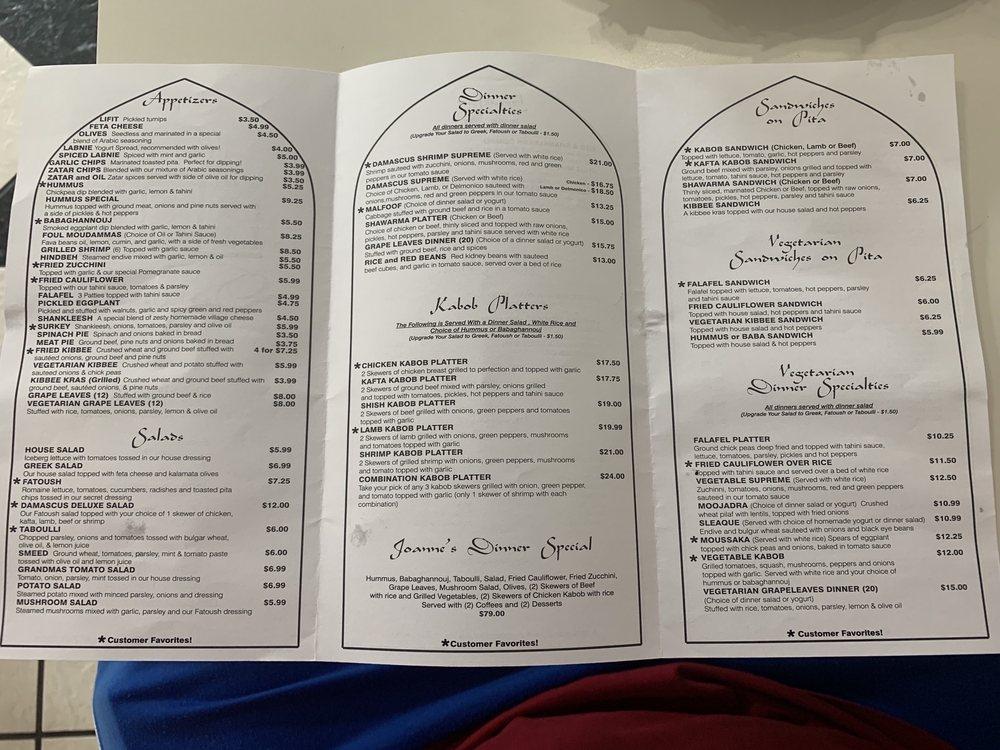 Appetizers
LIFIT Pickled turnips $3.50
FETA CHEESE $4.99
OLIVES Seedless and marinated in a special $4.50
blend of Arabic seasoning
LABNIE Yogurt Spread, recommended with olives! $4.00
SPICED LABNIE Spiced with mint and garlic $5.00
GARLIC CHIPS Marinated toasted pita. Perfect for dipping! $3.99
ZATAR CHIPS Blended with our mixture of Arabic seasonings $3.99
ZATAR and OIL Zatar spices served with side of olive oil for dipping $3.50
*HUMMUS $5.25
Chickpea dip blended with garlic, lemon & tahini
HUMMUS SPECIAL $9.25
Hummus topped with ground meat, onions and pine nuts served with
a side of pickles & hot peppers
*BABAGHANNOUJ $5.50
Smoked eggplant dip blended with garlic, lemon & tahini
FOUL MOUDAMMAS (Choice of Oil or Tahini Sauce) $8.25
Fava beans oil, lemon, cumin, and garlic, with a side of fresh vegetables
GRILLED SHRIMP (6) Topped with garlic sauce $8.50
HINDBEH Steamed endive mixed with garlic, lemon & oil $5.50
*FRIED ZUCCHINI $5.50
Topped with garlic & our special Pomegranate sauce
*FRIED CAULIFLOWER $5.99
Topped with our tahini sauce, tomatoes & parsley
FALAFEL 3 Patties topped with tahini sauce $4.99
PICKLED EGGPLANT $4.75
Pickled and stuffed with walnuts, garlic and spicy green and red peppers
SHANKLEESH A special blend of zesty homemade village cheese $4.50
*SURKEY Shankleesh, onions, tomatoes, parsley and olive oil $5.99
SPINACH PIE Spinach and onions baked in bread $3.50
MEAT PIE Ground beef, pine nuts and onions baked in bread $3.75
*FRIED KIBBEE Crushed wheat and ground beef stuffed with 4 for $7.25
sautéed onions, ground beef and pine nuts
VEGETARIAN KIBBEE Crushed wheat and potato stuffed with $5.99
sautéed onions & chick peas
KIBBEE KRAS (Grilled) Crushed wheat and ground beef stuffed with $3.99
ground beef, sautéed onions, & pine nuts
GRAPE LEAVES (12) Stuffed with ground beef & rice $8.00
VEGETARIAN GRAPE LEAVES (12) $8.00
Stuffed with rice, tomatoes, onions, parsley, lemon & olive oil
Salads
HOUSE SALAD $5.99
Iceberg lettuce with tomatoes tossed in our house dressing
GREEK SALAD $6.99
Our house salad topped with feta cheese and kalamata olives
*FATOUSH $7.25
Romaine lettuce, tomatoes, cucumbers, radishes and toasted pita
chips tossed in our secret dressing
*DAMASCUS DELUXE SALAD $12.00
Our Fatoush salad topped with your choice of 1 skewer of chicken,
kafta, lamb, beef or shrimp
*TABOULLI $6.00
Chopped parsley, onions and tomatoes tossed with bulgar wheat,
olive oil, & lemon juice
SMEED Ground wheat, tomatoes, parsley, mint & tomato paste $6.00
tossed with olive oil and lemon juice
GRANDMAS TOMATO SALAD $6.99
Tomato, onion, parsley, mint tossed in our house dressing
POTATO SALAD $6.99
Steamed potato mixed with minced parsley, onions and dressing
MUSHROOM SALAD $5.99
Steamed mushrooms mixed with garlic, parsley and our Fatoush dressing
*Customer Favorites!
Dinner
Specialties
All dinners served with dinner salad
(Upgrade Your Salad to Greek, Fatoush or Taboulli - $1.50)
*DAMASCUS SHRIMP SUPREME (Served with white rice) $21.00
Shrimp sauteed with zucchini, onions, mushrooms, red and green
peppers in our tomato sauce
DAMASCUS SUPREME (Served with white rice) Chicken - $16.75
Choice of Chicken, Lamb, or Delmonico sauteed with Lamb or Delmonico - $18.50
onions,mushrooms, red and green peppers in our tomato sauce
*MALFOOF (Choice of dinner salad or yogurt) $13.25
Cabbage stuffed with ground beef and rice in a tomato sauce
SHAWARMA PLATTER (Chicken or Beef) $15.00
Choice of chicken or beef, thinly sliced and topped with raw onions,
pickles, hot peppers, parsley and tahini sauce served with white rice
GRAPE LEAVES DINNER (20) (Choice of a dinner salad or yogurt) $15.75
Stuffed with ground beef, rice and spices
RICE and RED BEANS Red kidney beans with sauteed $13.00
beef cubes, and garlic in tomato sauce, served over a bed of rice
Kabob Platters
The Following is Served With a Dinner Salad , White Rice and
Choice of Hummus or Babaghannouj
(Upgrade Your Salad to Greek, Fatoush or Taboulli - $1.50)
*CHICKEN KABOB PLATTER $17.50
2 Skewers of chicken breast grilled to perfection and topped with garlic
KAFTA KABOB PLATTER $17.75
2 Skewers of ground beef mixed with parsley, onions grilled
and topped with tomatoes, pickles, hot peppers and tahini sauce
SHISH KABOB PLATTER $19.00
2 Skewers of beef grilled with onions, green peppers and tomatoes
topped with garlic
*LAMB KABOB PLATTER $19.99
2 Skewers of lamb grilled with onions, green peppers, mushrooms
and tomatoes topped with garlic
SHRIMP KABOB PLATTER $21.00
2 Skewers of grilled shrimp with onions, green peppers, mushrooms
and tomato topped with garlic
COMBINATION KABOB PLATTER $24.00
Take your pick of any 3 kabob skewers grilled with onion, green pepper,
and tomato topped with garlic (only 1 skewer of shrimp with each
combination)
Joanne's Dinner Special
Hummus, Babaghannouj, Taboulli, Salad, Fried Cauliflower, Fried Zucchini,
Grape Leaves, Mushroom Salad, Olives, (2) Skewers of Beef
with rice and Grilled Vegetables, (2) Skewers of Chicken Kabob with rice
Served with (2) Coffees and (2) Desserts
$79.00
*Customer Favorites!
Sandwiches
on Pita
*KABOB SANDWICH (Chicken, Lamb or Beef) $7.00
Topped with lettuce, tomato, garlic, hot peppers and parsley
*KAFTA KABOB SANDWICH $7.00
Ground beef mixed with parsley, onions grilled and topped with
lettuce, tomato, tahini sauce, hot peppers and parsley
SHAWARMA SANDWICH (Chicken or Beef) $7.00
Thinly sliced, marinated Chicken or Beef, topped with raw onions,
tomatoes, pickles, hot peppers, parsley and tahini sauce
KIBBEE SANDWICH $6.25
A kibbee kras topped with our house salad and hot peppers
Vegetarian
Sandwiches on Pita
*FALAFEL SANDWICH $6.25
Falafel topped with lettuce, tomatoes, hot peppers, parsley
and tahini sauce
FRIED CAULIFLOWER SANDWICH $6.00
Topped with house salad, hot peppers and tahini sauce
VEGETARIAN KIBBEE SANDWICH $6.25
Topped with house salad and hot peppers
HUMMUS or BABA SANDWICH $5.99
Topped with house salad & hot peppers
Vegetarian
Dinner Specialties
All dinners served with dinner salad
(Upgrade Your Salad to Greek, Fatoush or Taboulli - $1.50)
FALAFEL PLATTER $10.25
Ground chick peas deep fried and topped with tahini sauce,
lettuce, tomatoes, parsley, pickles and hot peppers
*FRIED CAULIFLOWER OVER RICE $11.50
Topped with tahini sauce and served over a bed of white rice
VEGETABLE SUPREME (Served with white rice) $12.50
Zuchinni, tomatoes, onions, mushrooms, red and green peppers
sauteed in our tomato sauce
MOOJADRA (Choice of dinner salad or yogurt) Crushed $10.99
wheat pilaf with lentils, topped with fried onions
SLEAQUE (Served with choice of homemade yogurt or dinner salad) $10.99
Endive and bulgur wheat sauteed with onions and black eye beans
*MOUSSAKA (Served with white rice) Spears of eggplant $12.25
topped with chick peas and onions, baked in tomato sauce
*VEGETABLE KABOB $12.00
Grilled tomatoes, squash, mushrooms, peppers and onions
topped with garlic. Served with white rice and your choice of
hummus or babaghannouj
VEGETARIAN GRAPELEAVES DINNER (20) $15.00
(Choice of dinner salad or yogurt)
Stuffed with rice, tomatoes, onions, parsley, lemon & olive oil
*Customer Favorites!